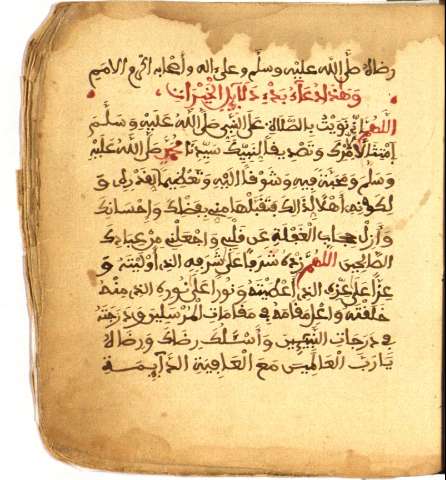 رضاك صلى الله عليه وسلم وعلى اله واصحابه اكرم الاميم
وهذا دعاء بدء دلايل الخيرات
اللهم اني نويت بالصلاة على النبي صلى الله عليه وسلم
امتثالا لامرك وتصديفا لنبيك سيدنا محمد صلى الله عليه
وسلم ومحبة فيه وشوفا اليه وتعظيما لفدره
لكونه اهلا لذالك فتقبلها مني بفضلك واحسانك
وازل حجاب الغفلة عن قلبي واجعلني من عبادك
الصالحين اللهم زده شرفا على شرفه الذي أوليته و
عزا على عزه الذي اعطيته ونورا على نوره الذي منه
خلقته واعل مقامه في مقامات المرسلين ودرجته
في درجات النبيين وأسئلك رضاك ورضاه
يا رب العالمين مع العافية الدايمة